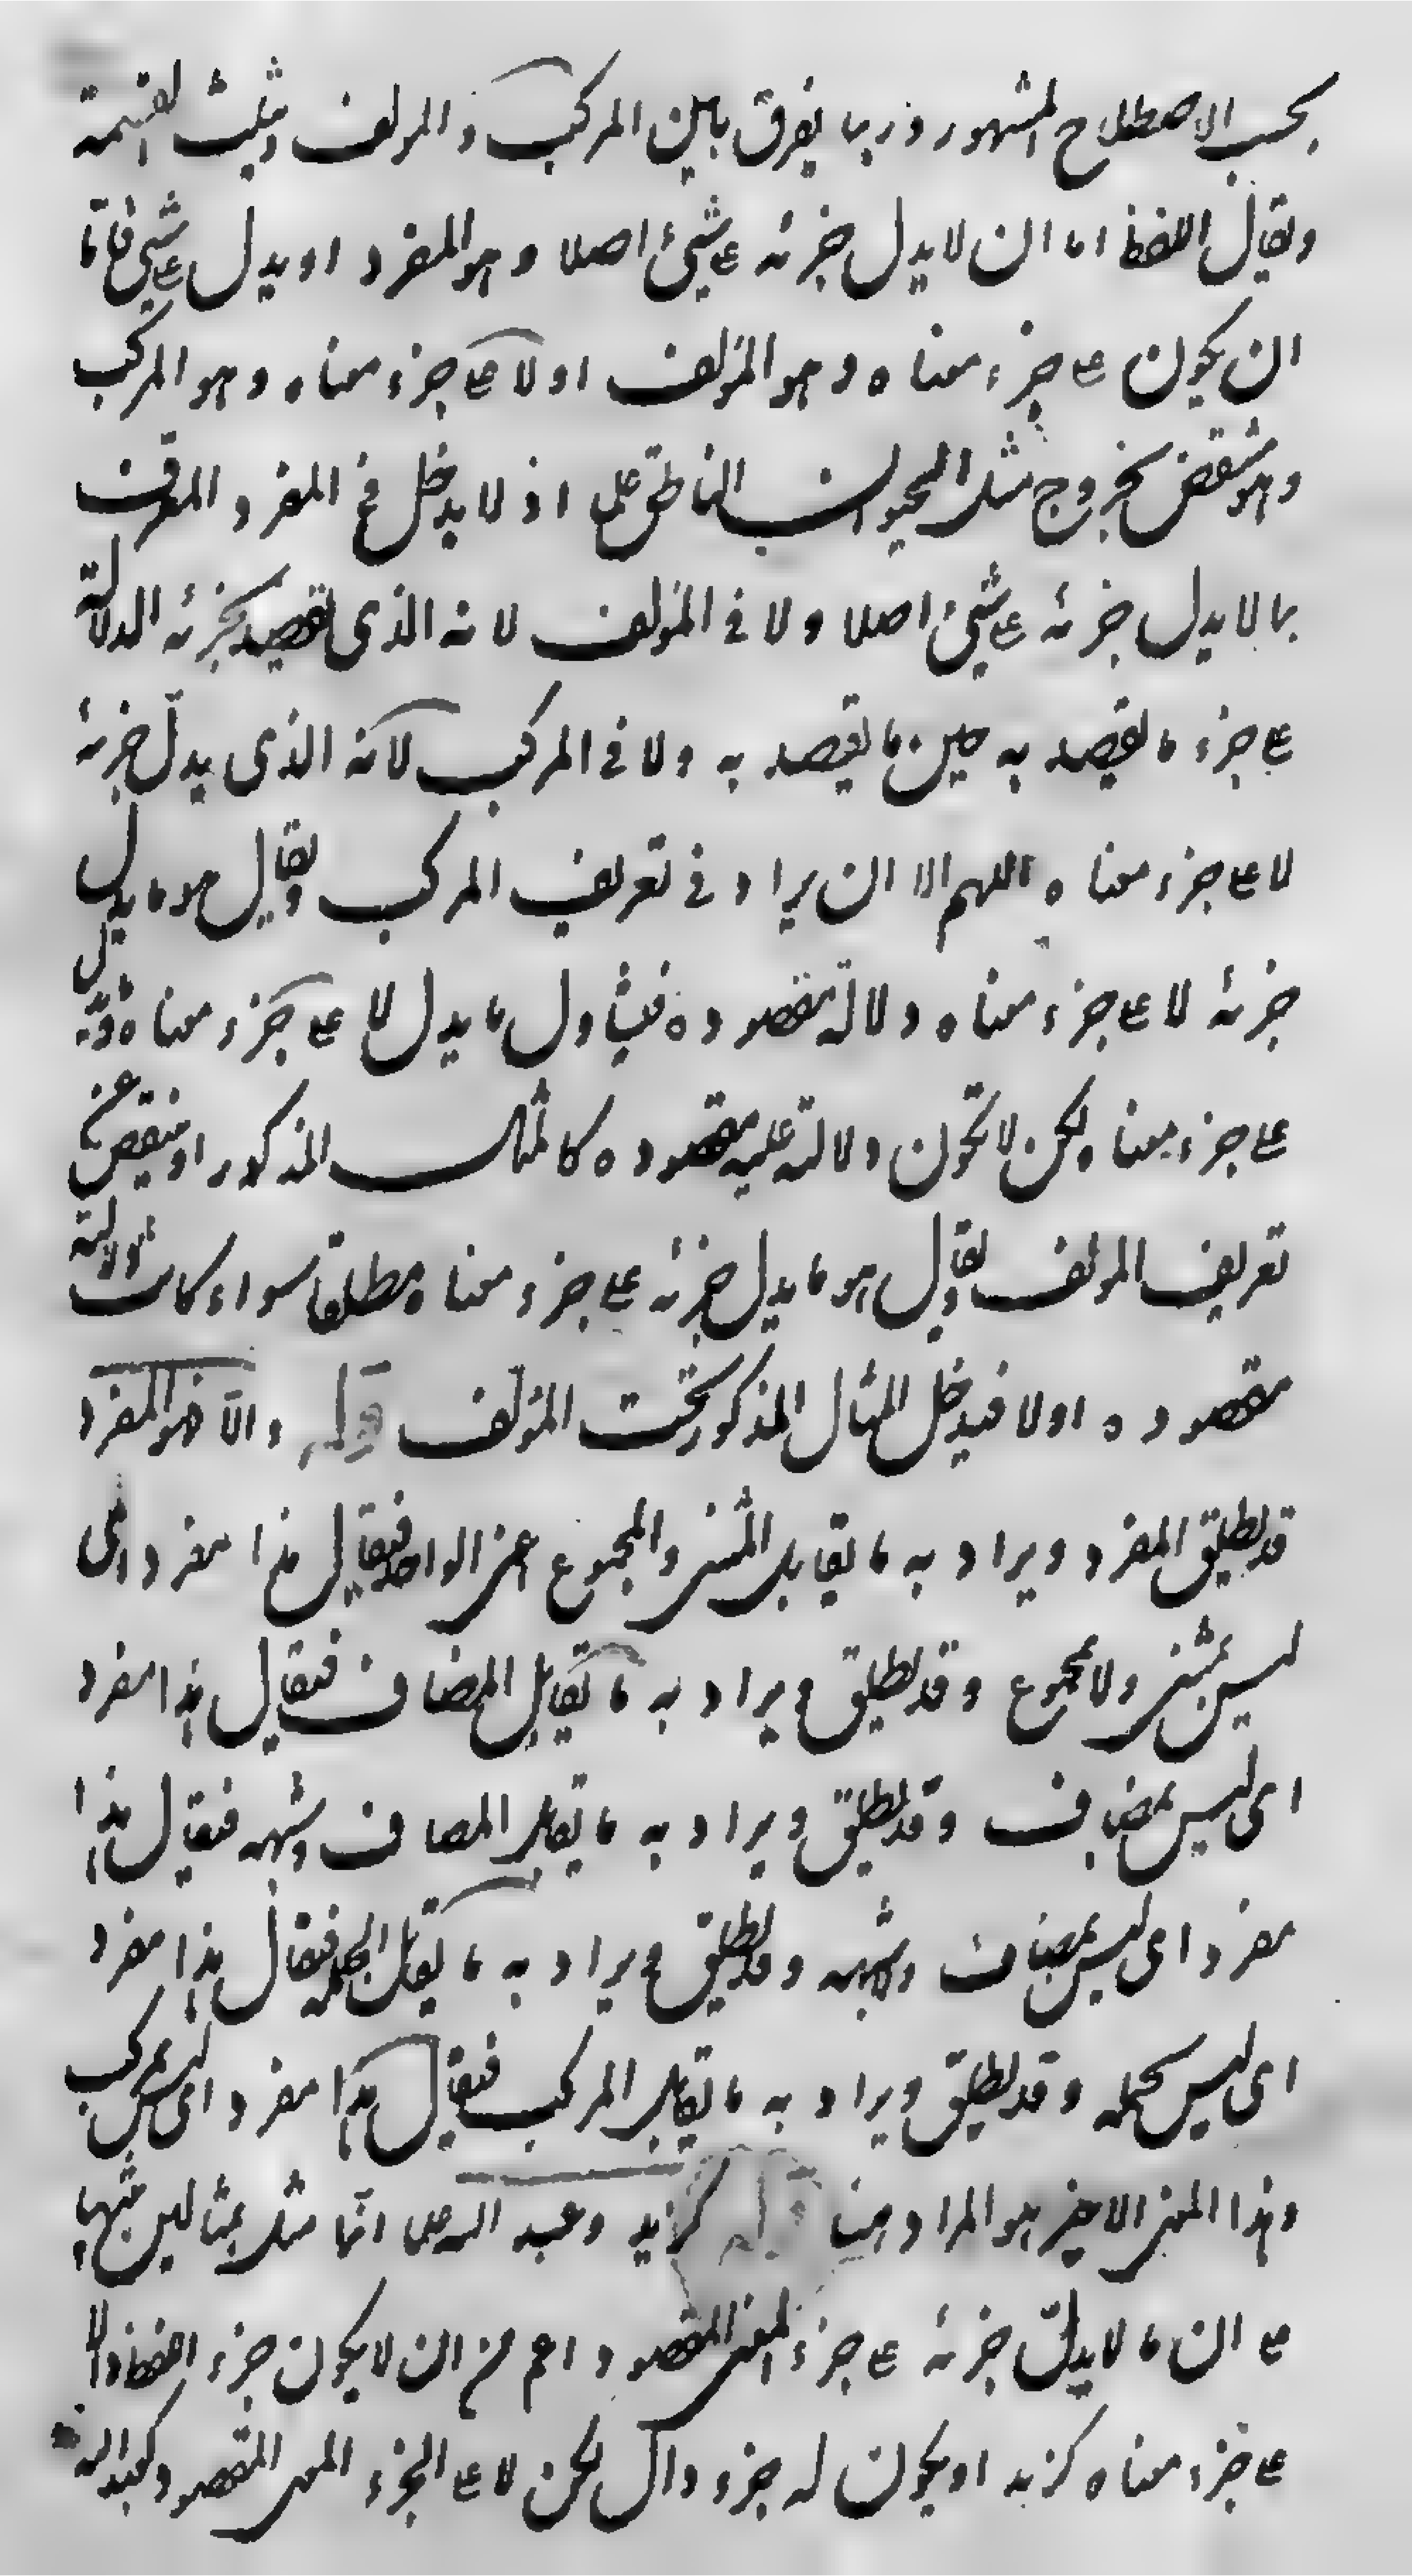 بحسب الاصطلاح المشهور وربما يفرق بين المركب والمولف ويثلث القسمة
ويقال اللفظ اما ان لا يدل جزئه ع شئ اصلا وهو المفرد او يدل ع شئ فاما
ان يكون ع جزء معناه وهو المؤلف او لا ع جزء معناه وهو المركب
وهو منتقض بخروج مثل الحيوان الناطق علما اذ لا يدخل في المفرد المعرف
بما لا يدل جزئه ع شئ اصلا ولا في المؤلف لانه الذى يقصد بجزئه الدلالة
ع جزء ما يقصد به حين ما يقصد به ولا في المركب لانه الذى يدل جزئه
لا ع جزء معناه اللهم الا ان يراد في تعريف المركب ويقال هو ما يدل
جزئه لا ع جزء معناه دلالة مقصودة فيتناول ما يدل لا ع جزء معناه
ع جزء معناه ولكن لا تكون دلالته عليه مقصودة كالمثال المذكور او ينقص من
تعريف المولف ويقال هو ما يدل جزئه ع جزء معناه مطلقا سواء كانت الدلالة
مقصودة او لا فيدخل المثال المذكور تحت المؤلف قوله والا فهو المفرد
قد يطلق المفرد ويراد به ما يقابل المثنى والمجموع اعنى الواحد فيقال هذا مفرد اى
ليس بمثنى ولا مجموع وقد يطلق ويراد به ما يقابل المضاف فيقال هذا مفرد
اى ليس بمضاف وقد يطلق ويراد به ما يقابل المضاف وشبهه فيقال هذا
مفرد اى ليس بمضاف وشبهه وقد يطلق ويراد به ما يقابل الجملة فيقال هذا مفرد
اى ليس بجملة وقد يطلق ويراد به ما يقابل المركب فيقال هذا مفرد اى ليس بمركب
وهذا المعنى الاخير هو المراد هنا قوله كزيد وعبد الله علما انما مثل بمثالين تنبيها
ع ان ما لا يدل جزئه ع جزء المعنى المقصود اعم من ان لا يكون جزء اللفظ دالا
ع جزء معناه كزيد او يكون له جزء دال لكن لا ع الجزء المعنى المقصود كعبد الله